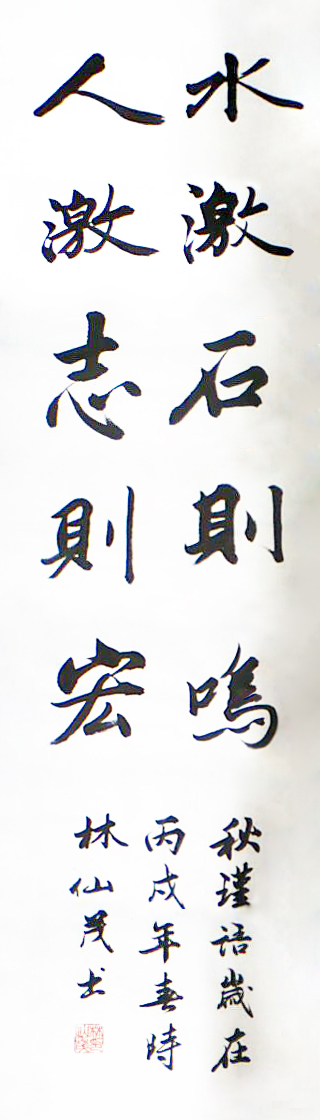 水激石則鳴
人激志則宏
秋瑾語歲在
丙戌年春時
林仙茂书